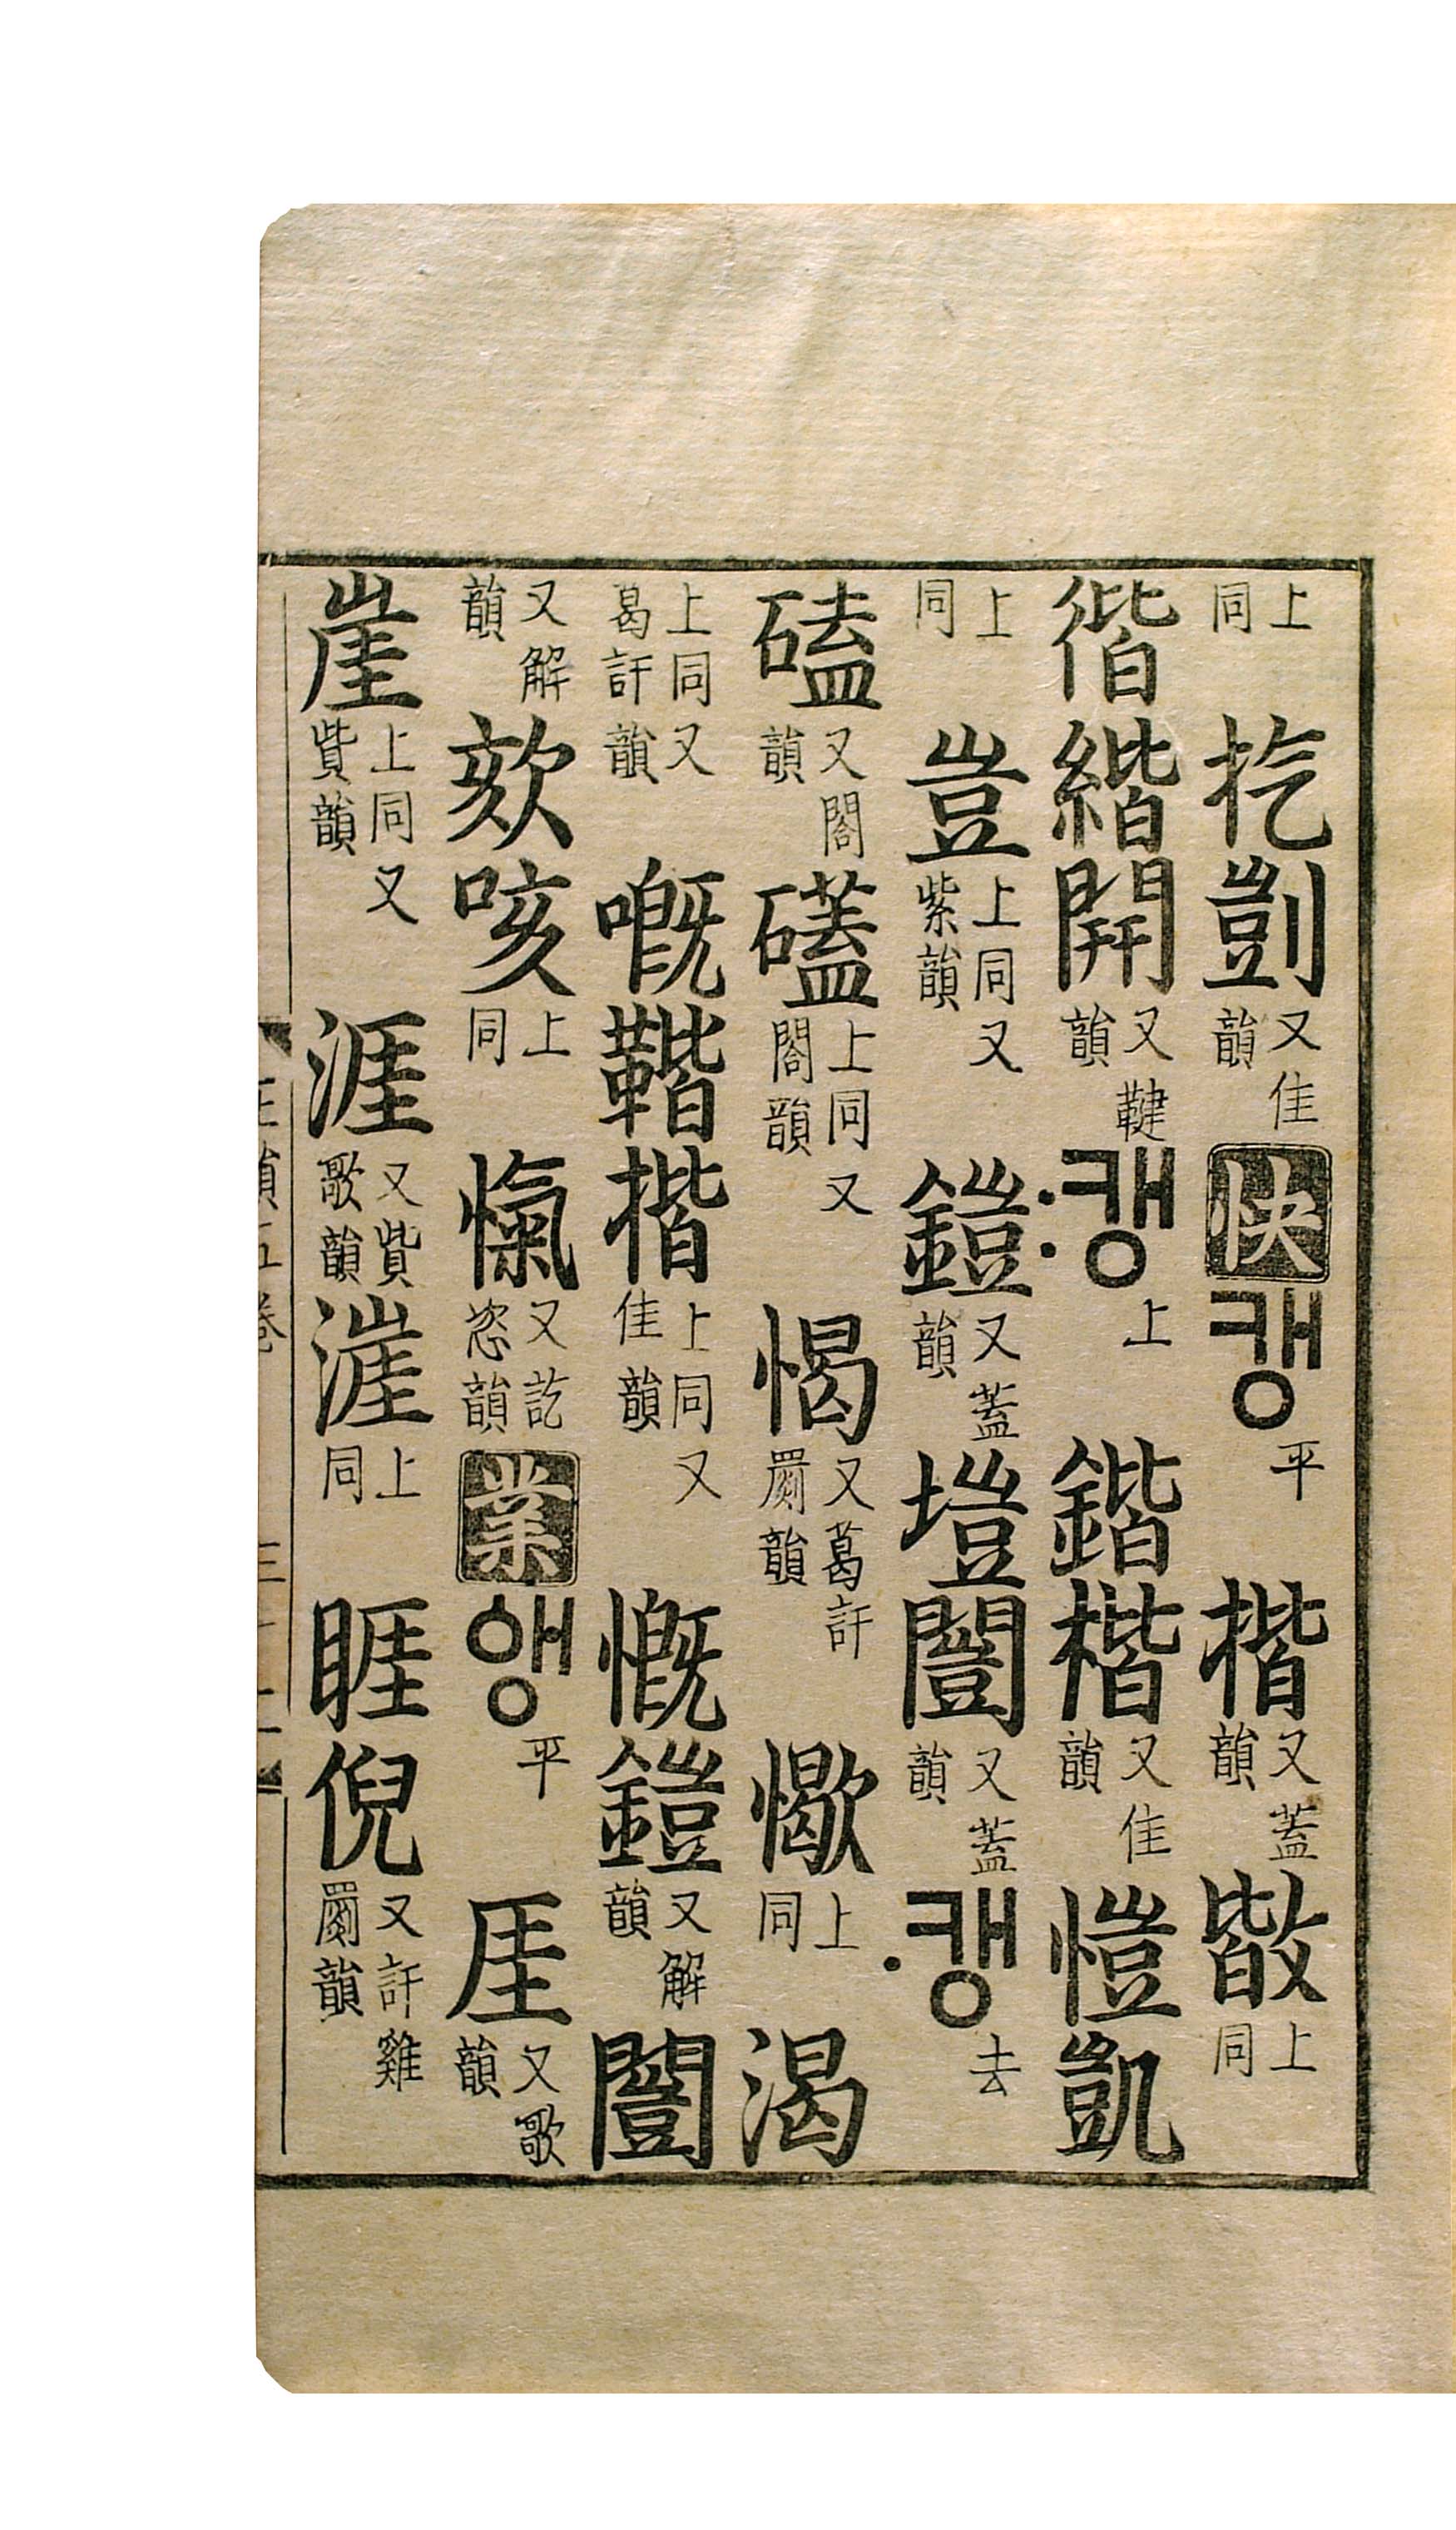 上同扢剴又佳韻快캥平揩又蓋韻㪡上同
偕緒開又鞬韻캥上鍇楷又佳韻愷凱
上同豈上同又紫韻鎧又蓋韻塏闓又蓋韻캥去
磕又閤韻礚上同又閤韻愒又葛訐罽韻憿上同渴
上同又葛訐韻嘅鞜揩上同又佳韻慨鎧又解韻闓
又解韻欬咳上同愾又訖恣韻業앵平厓又歌韻
崖上同又貲韻涯又貲歌韻漄上同睚倪又訐雞罽韻